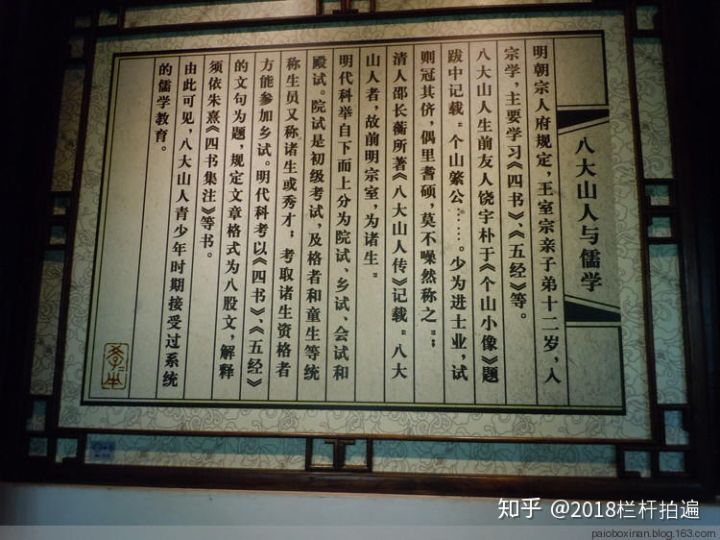 八大山人与儒学
明朝宗人府规定，王室宗亲子弟十二岁，入
宗学，主要学习《四书》、《五经》等。
八大山人生前友人饶宇朴于《个山小像》题
跋中记载“个山綮公……。少为进士业，试
则冠其侪，偶里耆硕，莫不噪然称之”；
清人邵长蘅所著《八大山人传》记载“八大
山人者，故前明宗室，为诸生”
明代科举自下而上分为院试、乡试、会试和
殿试。院试是初级考试，及格者和童生等统
称生员又称诸生或秀才；考取诸生资格者
方能参加乡试。明代科考以《四书》、《五经》
的文句为题，规定文章格式为八股文，解释
须依朱熹《四书集注》等书。
由此可见，八大山人青少年时期接受过系统
的儒学教育。
知乎 @2018栏杆拍遍
paioboxinan.blog.163.com